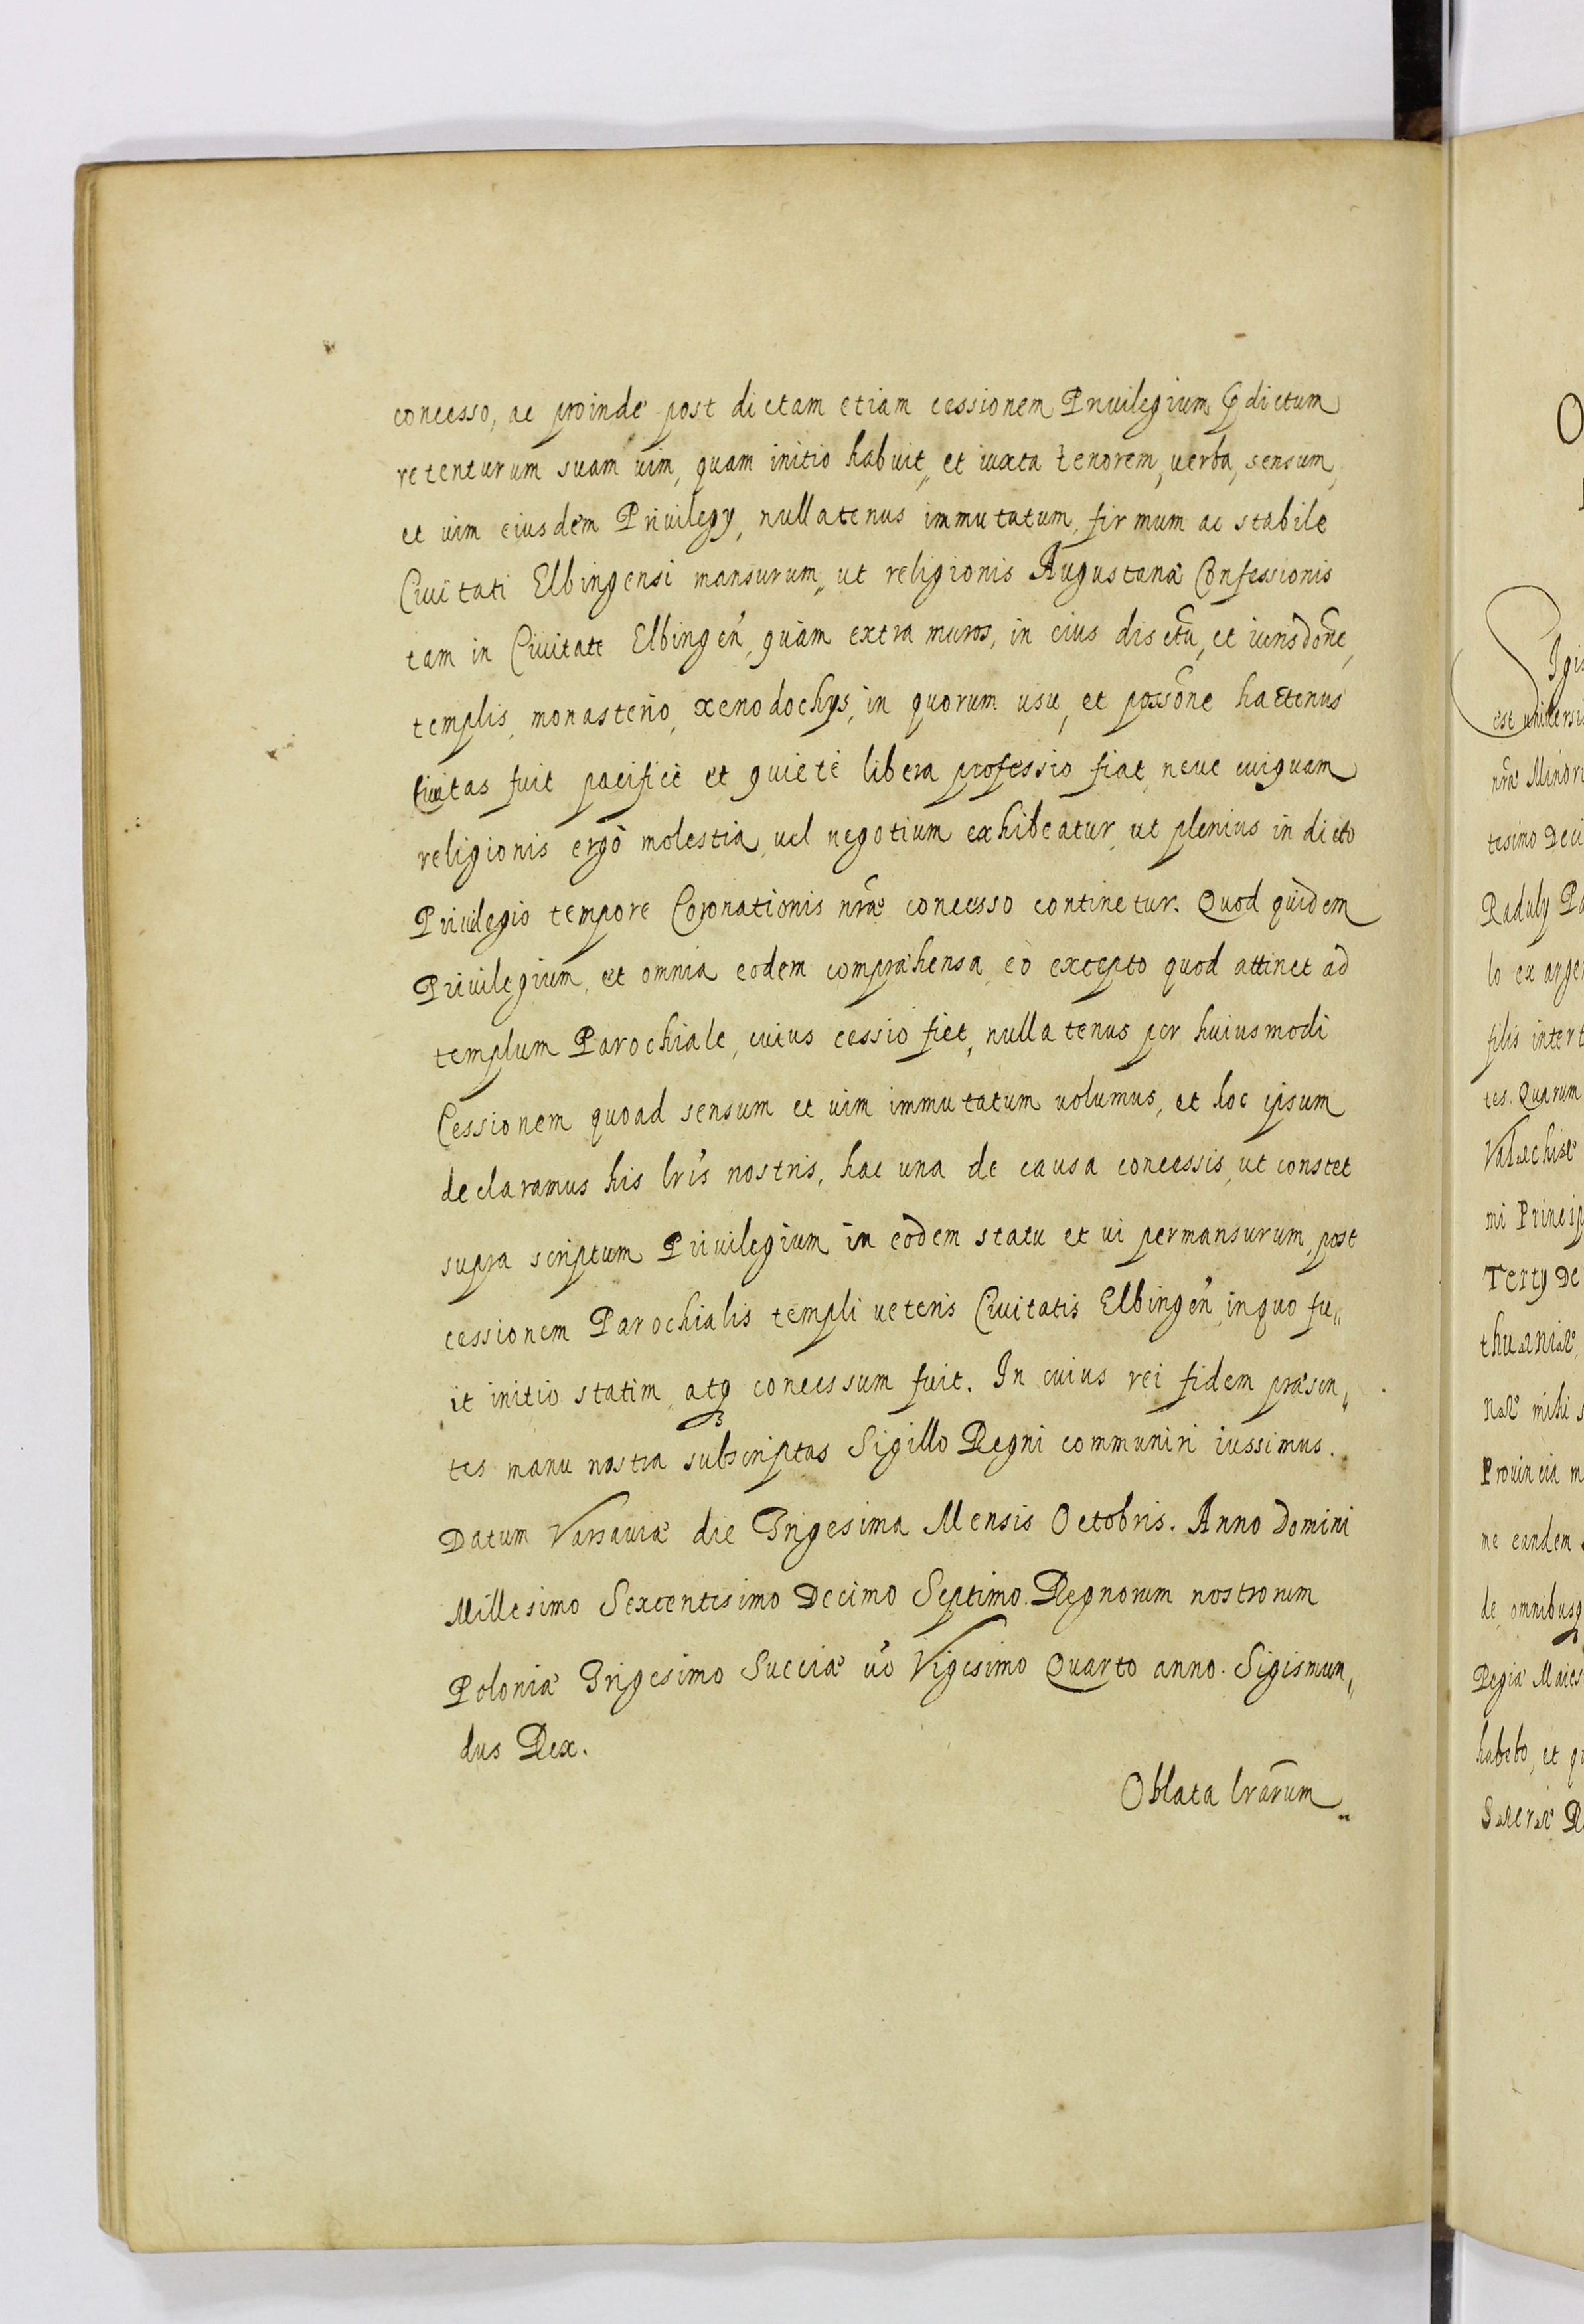 concesso, ac proinde post dictam etiam cessionem Privilegium pdictum
retenturum suam uim, quam initio habuit, et iuxta tenorem, uerba, sensum,
et uim eiusdem Privilegy, nullatenus immutatum, firmum ac stabile
Civitati Elbingensi mansurum, ut religionis Augustanæ Confessionis
tam in Civitate Elbingeñ, quàm extra muros, in eius disctũ, et iurisdõne,
templis, monasterio, xenodochys, in quorum usu, et possõne hactenus
Civitas fuit pacificè et quietè libera professio fiat, neue cuiquam
religionis ergò molestia, uel negotium exhibeatur, ut plenius in dicto
Privilegio tempore Coronationis nræ concesso continetur. Quod quidem
Privilegium, et omnia eodem compræhensa, eò excepto quod attinet ad
templum Parochiale, cuius cessio fiet, nullatenus per huiusmodi
Cessionem quoad sensum et uim immutatum uolumus, et hoc ipsum
declaramus his lrĩs nostris, hac una de causa concessis, ut constet
supra scriptum Privilegium in eodem statu et ui permansurum, post
cessionem Parochialis templi ueteris Civitatis Elbingeñ, in quo fu„
it initio statim, atq concessum fuit. In cuius rei fidem præsen„
tes manu nostra subscriptas Sigillo Regni communiri iussimus.
Datum Varsauiæ die Trigesima Mensis Octobris. Anno Domini
Millesimo Sexcentesimo Decimo Septimo. Regnorum nostrorum
Poloniæ Trigesimo Sueciæ uo Vigesimo Quarto anno. Sigismun„
dus Rex.
Oblata lrarum
O
Sigis
est uniuersis
nræ Minori
tesimo Deci
Raduly Pa
lo ex argen
filis intert
tes. Quarum
Valachiæ
mi Princip
Terty De
thuaniæ,
næ mihi s
Provincia m
ne eandem
de, omnibusq
Regiæ Maies
habebo, et qu
Sacræ R